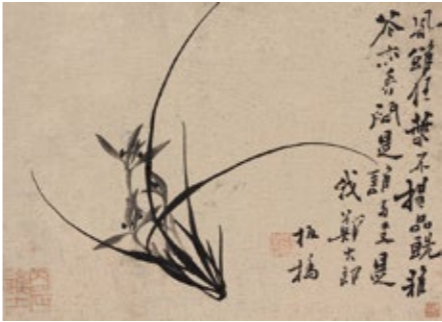 風雖狂葉不揚品既雅
花亦香問是誰與友是
我鄭大郎
板橋